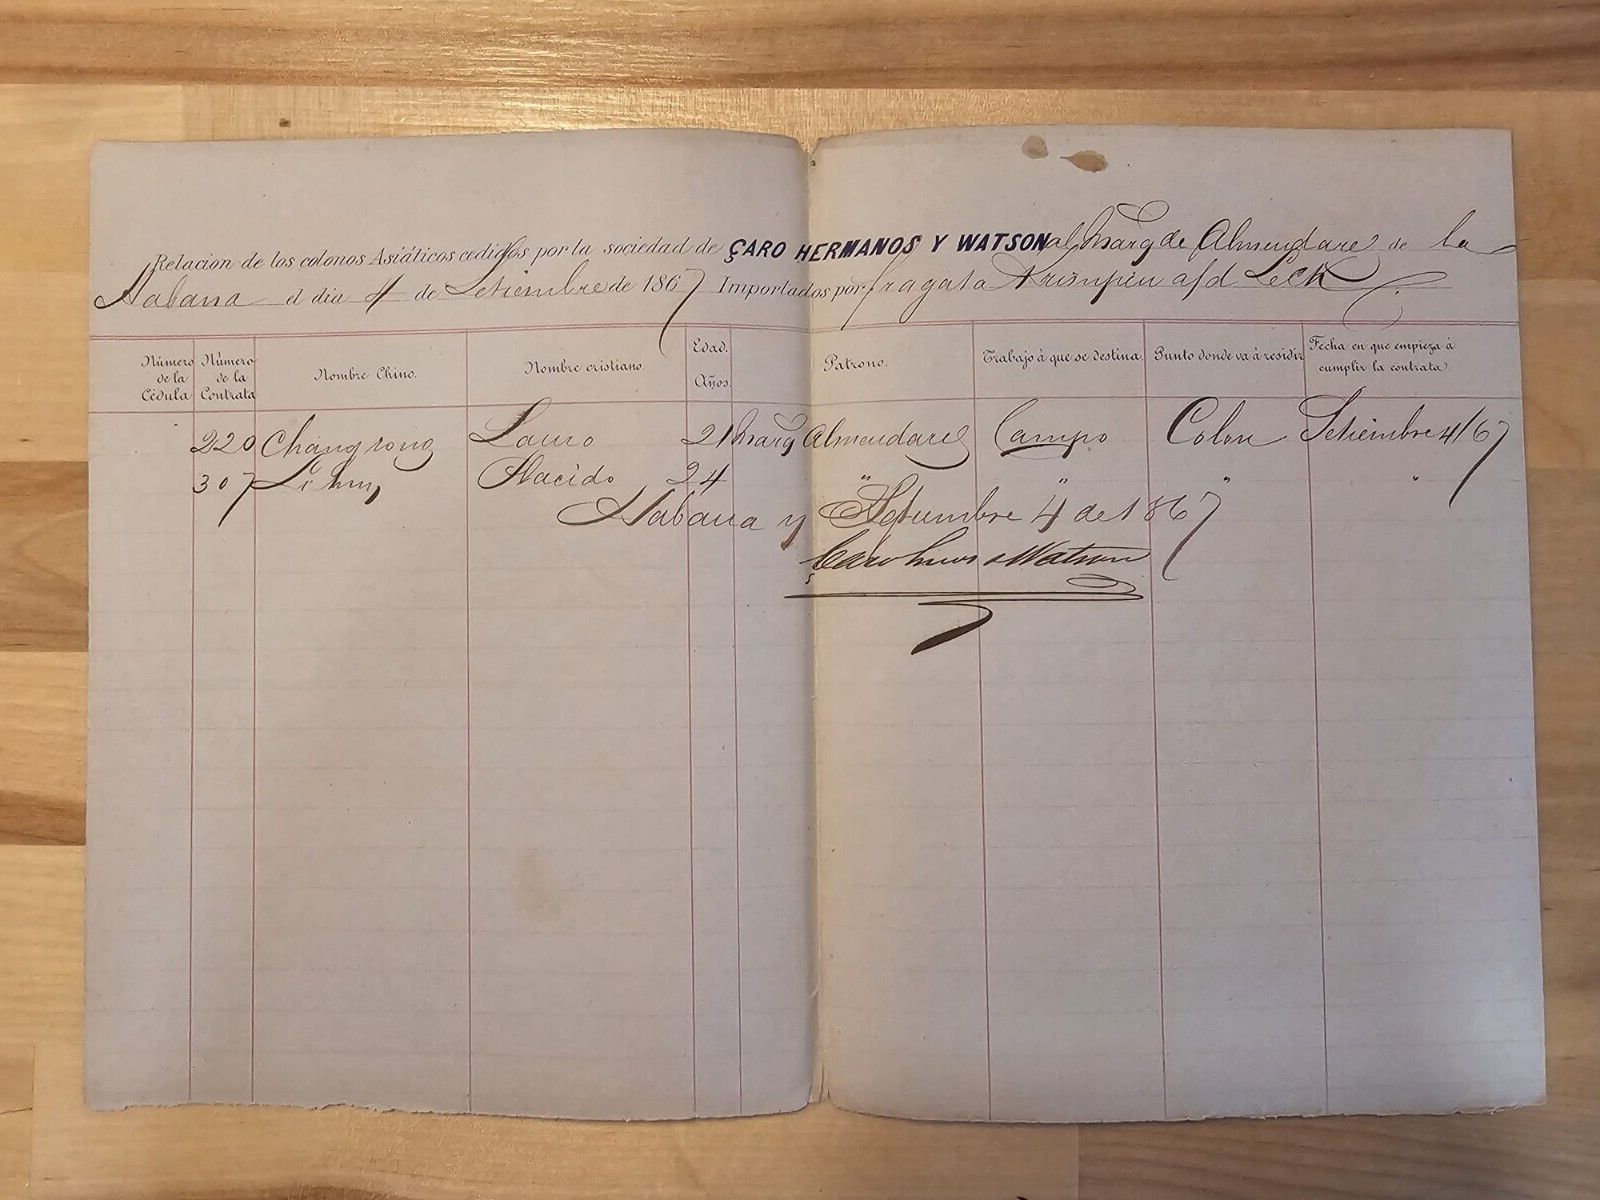 Relacion de los colonos Asiáticos cedidos por la sociedad de ÇARO HERMANOS Y WATSON al Marq de Almendares de la
Habana el dia 4 de Setiembre de 1867 Importados por fragata
Número de la Cédula Número de la Contrata Nombre Chino. Nombre cristiano. Edad. Años. Patrono. Trabajo á que se destina. Punto donde va á residir Fecha en que empieza á cumplir la contrata.
220 Chang rong Lauro 21 Marq Almendares Campo Colon Setiembre 4/67
307 Placido 24 " " " "
Habana y Setiembre 4 de 1867
Çaro hnos & Watson